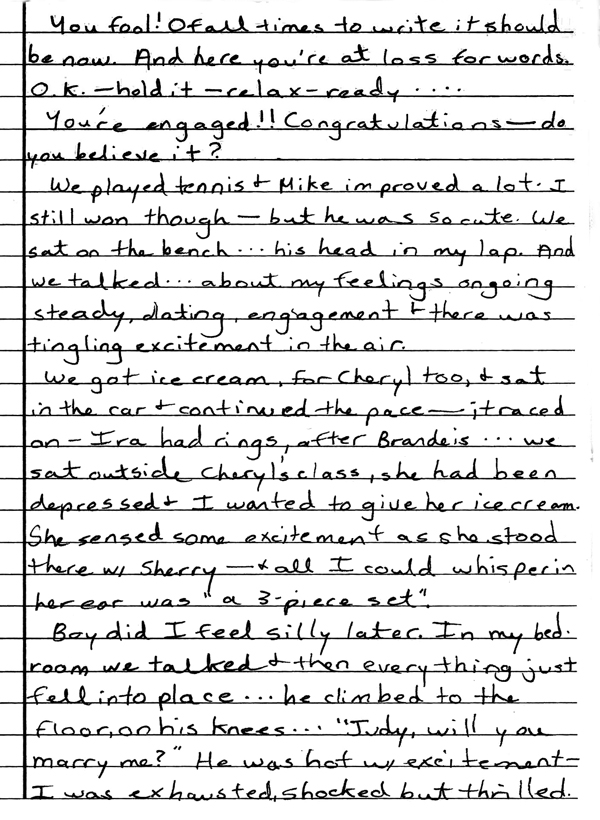 You fool! Of all times to write it should
be now. And here you're at loss for words.
O.K. – hold it – relax – ready ....
You're engaged!! Congratulations — do
you believe it?
We played tennis & Mike improved a lot. I
still won though – but he was so cute. We
sat on the bench... his head in my lap. And
we talked... about my feelings on going
steady, dating, engagement & there was
tingling excitement in the air.
We got ice cream, for Cheryl too, & sat
in the car & continued the pace — it raced
on – Ira had rings, after Brandeis... we
sat outside Cheryl's class, she had been
depressed & I wanted to give her ice cream.
She sensed some excitement as she stood
there w/ Sherry — & all I could whisper in
her ear was "a 3-piece set".
Boy did I feel silly later. In my bed-
room we talked & then every thing just
fell into place... he climbed to the
floor, on his knees... "Judy, will you
marry me?" He was hot w/ excitement –
I was exhausted, shocked but thrilled.